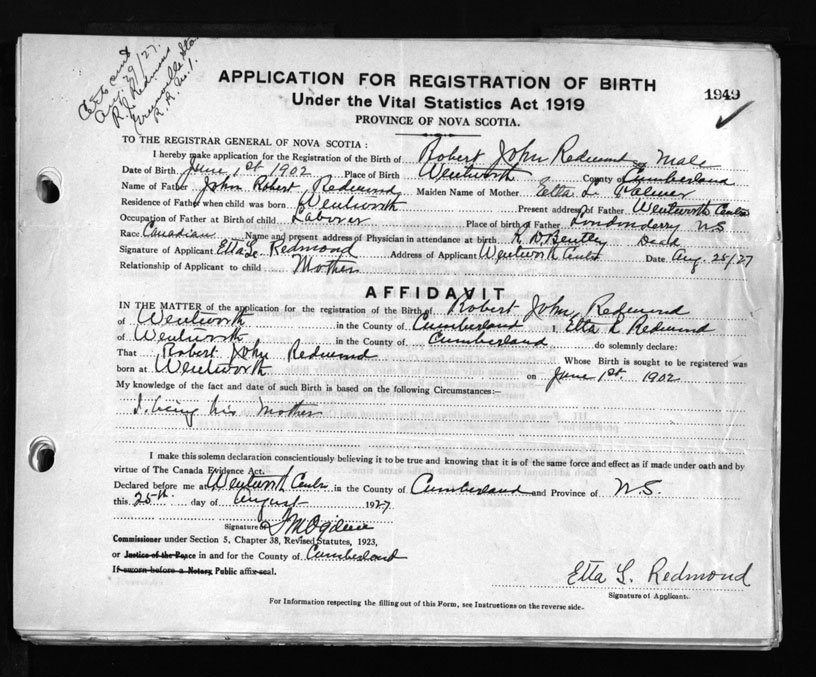 Cert sent
Aug. 29/27.
R. J. Redmond
R. R. No. 1.
APPLICATION FOR REGISTRATION OF BIRTH
1949
Under the Vital Statistics Act 1919
PROVINCE OF NOVA SCOTIA.
TO THE REGISTRAR GENERAL OF NOVA SCOTIA :
I hereby make application for the Registration of the Birth of Robert John Redmond Male
Date of Birth June 1st 1902 Place of Birth Wentworth County of Cumberland
Name of Father John Robert Redmond Maiden Name of Mother Etta L. Palmer
Residence of Father when child was born Wentworth Present address of Father Wentworth Centre
Occupation of Father at Birth of child Laborer Place of birth of Father Londonderry NS
Race Canadian Name and present address of Physician in attendance at birth R. D. Bentley Dead
Signature of Applicant Etta L. Redmond Address of Applicant Wentworth Centre Date Aug. 25/27
Relationship of Applicant to child Mother
AFFIDAVIT
IN THE MATTER of the application for the registration of the Birth of Robert John Redmond
of Wentworth in the County of Cumberland I, Etta L Redmond
of Wentworth in the County of Cumberland do solemnly declare:
That Robert John Redmond Whose Birth is sought to be registered was
born at Wentworth on June 1st. 1902
My knowledge of the fact and date of such Birth is based on the following Circumstances:—
I being his Mother
I make this solemn declaration conscientiously believing it to be true and knowing that it is of the same force and effect as if made under oath and by
virtue of The Canada Evidence Act.
Declared before me at Wentworth Centre in the County of Cumberland and Province of N.S.
this 25th. day of August 1927
Signature of J M Ogilvie
Commissioner under Section 5, Chapter 38, Revised Statutes, 1923,
or Justice of the Peace in and for the County of Cumberland
If sworn before a Notary Public affix seal.
Etta L. Redmond
Signature of Applicant.
For Information respecting the filling out of this Form, see Instructions on the reverse side.